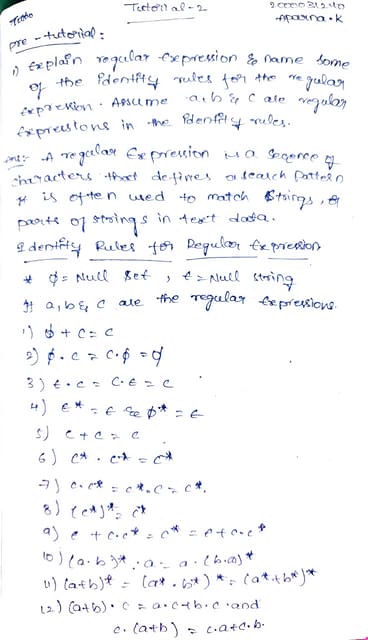 Tutorial-2
2000031240
Aparna.K
Pre-tutorial:
1) Explain regular Expression & name some
of the identity rules for the regular
expression. Assume a,b & c are regular
Expressions in the identity rules.
Ans:- A regular Expression is a Seqence of
characters that defines a search pattern
It is often used to match Strings, or
parts of strings in text data.
Identity Rules for Regular Expression
* ϕ = Null Set , ϵ = Null string
If a,b & c are the regular Expressions.
1) ϕ + c = c
2) ϕ . c = c . ϕ = ϕ
3) ϵ . c = c . ϵ = c
4) ϵ* = ϵ & ϕ* = ϵ
5) c + c = c
6) c* . c* = c*
7) c . c* = c* . c = c*.
8) (c*)* = c*
9) ϵ + c . c* = c* = ϵ + c . c*
10) (a . b)* . a = a . (b.a)*
11) (a+b)* = (a* . b*)* = (a* + b*)*
12) (a+b) . c = a.c + b.c and
c . (a+b) = c.a + c.b.